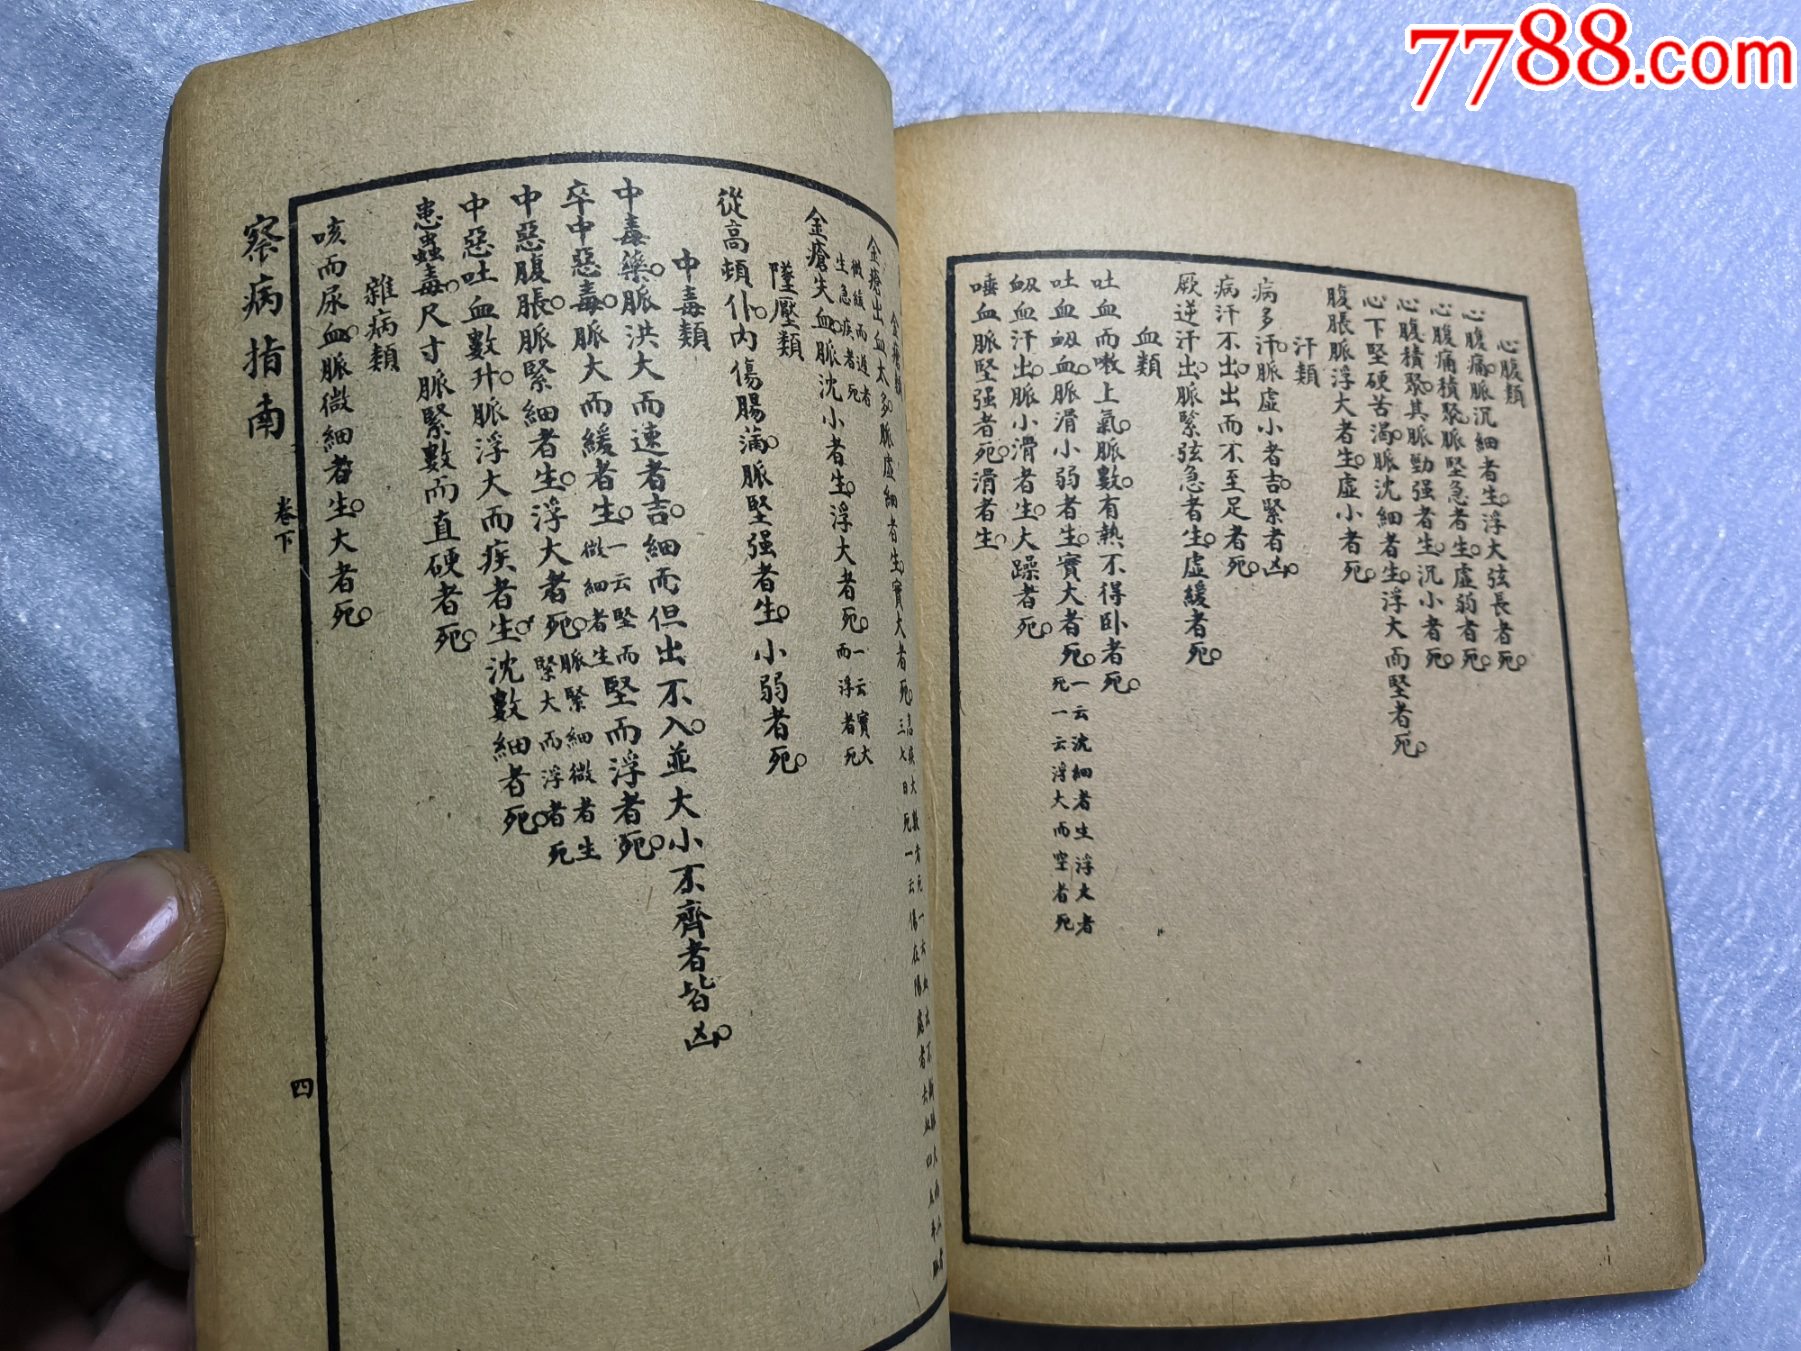 7788.com
心腹類
心腹痛。脈沉細者生。浮大弦長者死。
心腹痛積聚。脈堅急者生。虛弱者死。
心腹積聚。其脈勁强者生。沉小者死。
心下堅硬苦渴。脈沈細者生。浮大而堅者死。
腹脹脈浮大者生。虛小者死。
汗類
病多汗。脈虛小者吉。緊者凶。
病汗不出。出而不至足者死。
厥逆汗出。脈緊弦急者生。虛緩者死。
血類
吐血而嗽上氣。脈數。有熱不得卧者死。
吐血衂血。脈滑小弱者生。實大者死。一云沈細者生浮大者死一云浮大而空者死
衂血汗出。脈小滑者生。大躁者死。
唾血脈堅强者死。滑者生。
金瘡類
金瘡出血太多。脈虛細者生。實大者死。
金瘡失血。脈沈小者生。浮大者死。一云實大而浮者死
微緩而遲者生急疾者死
墜壓類
從高頬仆。內傷腸滿。脈堅强者生。小弱者死。
中毒類
中毒藥。脈洪大而速者吉。細而但出不入。並大小不齊者皆凶。
卒中惡毒。脈大而緩者生。一云堅而微細者生堅而浮者死。
中惡腹脹。脈緊細者生。浮大者死。脈緊細微者生緊大而浮者死
中惡吐血數升。脈浮大而疾者生。沈數細者死。
患蟲毒。尺寸脈緊數而直硬者死。
雜病類
咳而尿血。脈微細者生。大者死。
察病指南
卷下
四